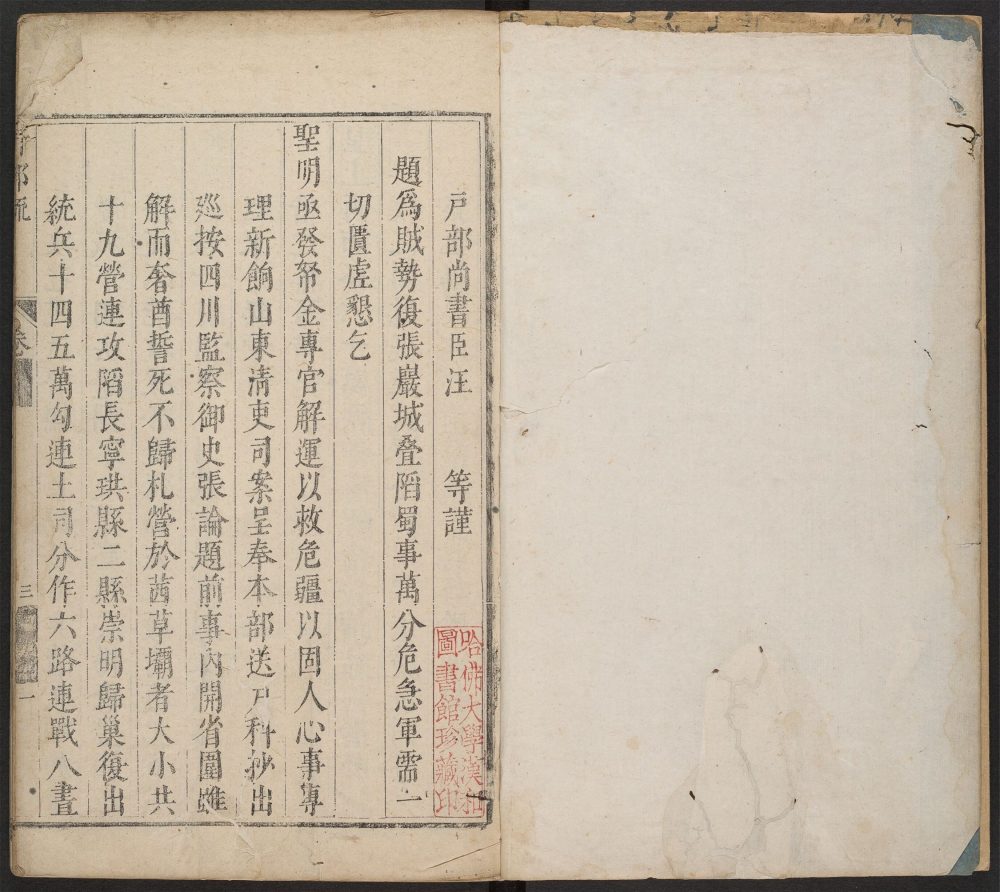 戶部尚書臣汪　　等謹
題爲賊勢復張巖城叠陷蜀事萬分危急軍需一
切匱虛懇乞
聖明亟發帑金專官解運以救危疆以固人心事專
理新餉山東清吏司案呈奉本部送戶科抄出
廵按四川監察御史張論題前事內開省圍雖
解而奢酋誓死不歸札營於茜草壩者大小共
十九營連攻陷長寧珙縣二縣崇明歸巢復出
統兵十四五萬勾連土司分作六路連戰八晝
哈佛大學漢和
圖書館珍藏印
部疏
卷
三
一